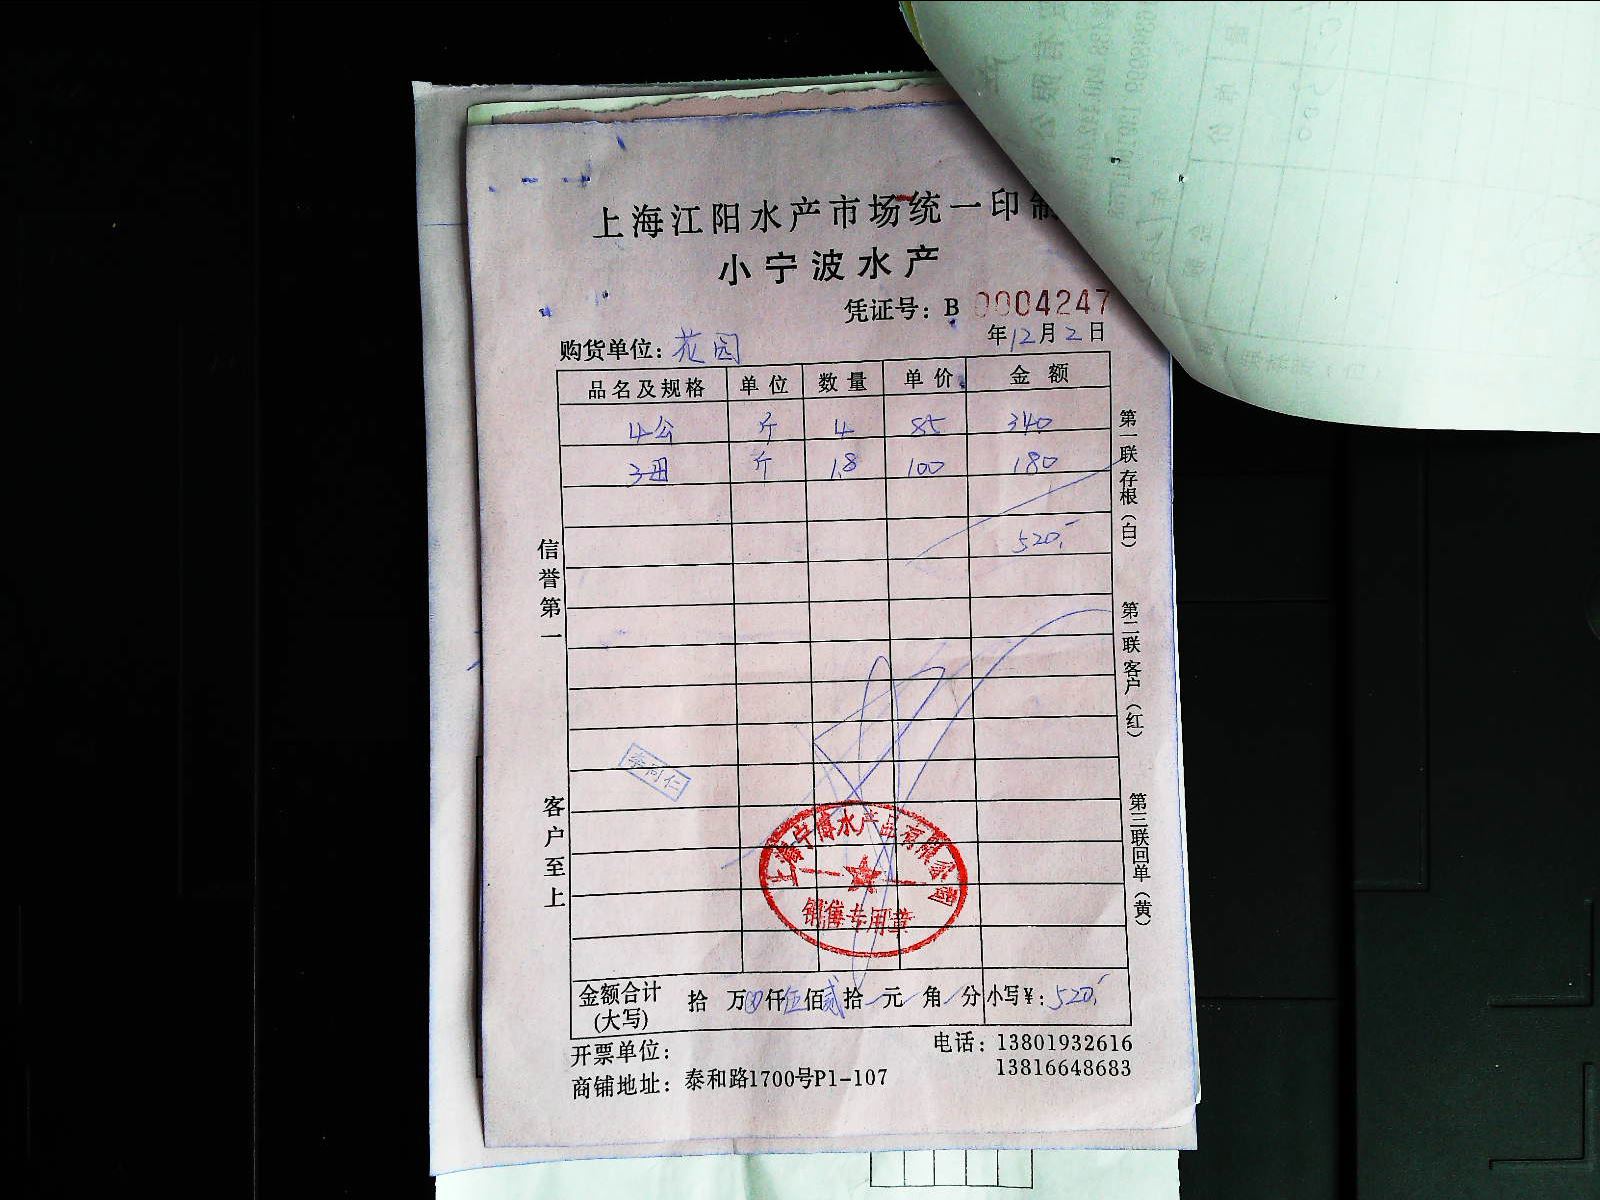 上海江阳水产市场统一印制
小宁波水产
凭证号：B 0004247
年12月2日
购货单位：花园
品名及规格 单位 数量 单价 金额
4公 斤 4 85 340
3母 斤 1.8 100 180
520.-
信誉第一
客户至上
第一联存根（白）
第二联客户（红）
第三联回单（黄）
李同仁
上海宁博水产品有限公司
销售专用章
金额合计(大写) 拾 万 仟伍佰贰拾 元 角 分 小写¥：520.-
开票单位：
电话：13801932616
13816648683
商铺地址：泰和路1700号P1-107